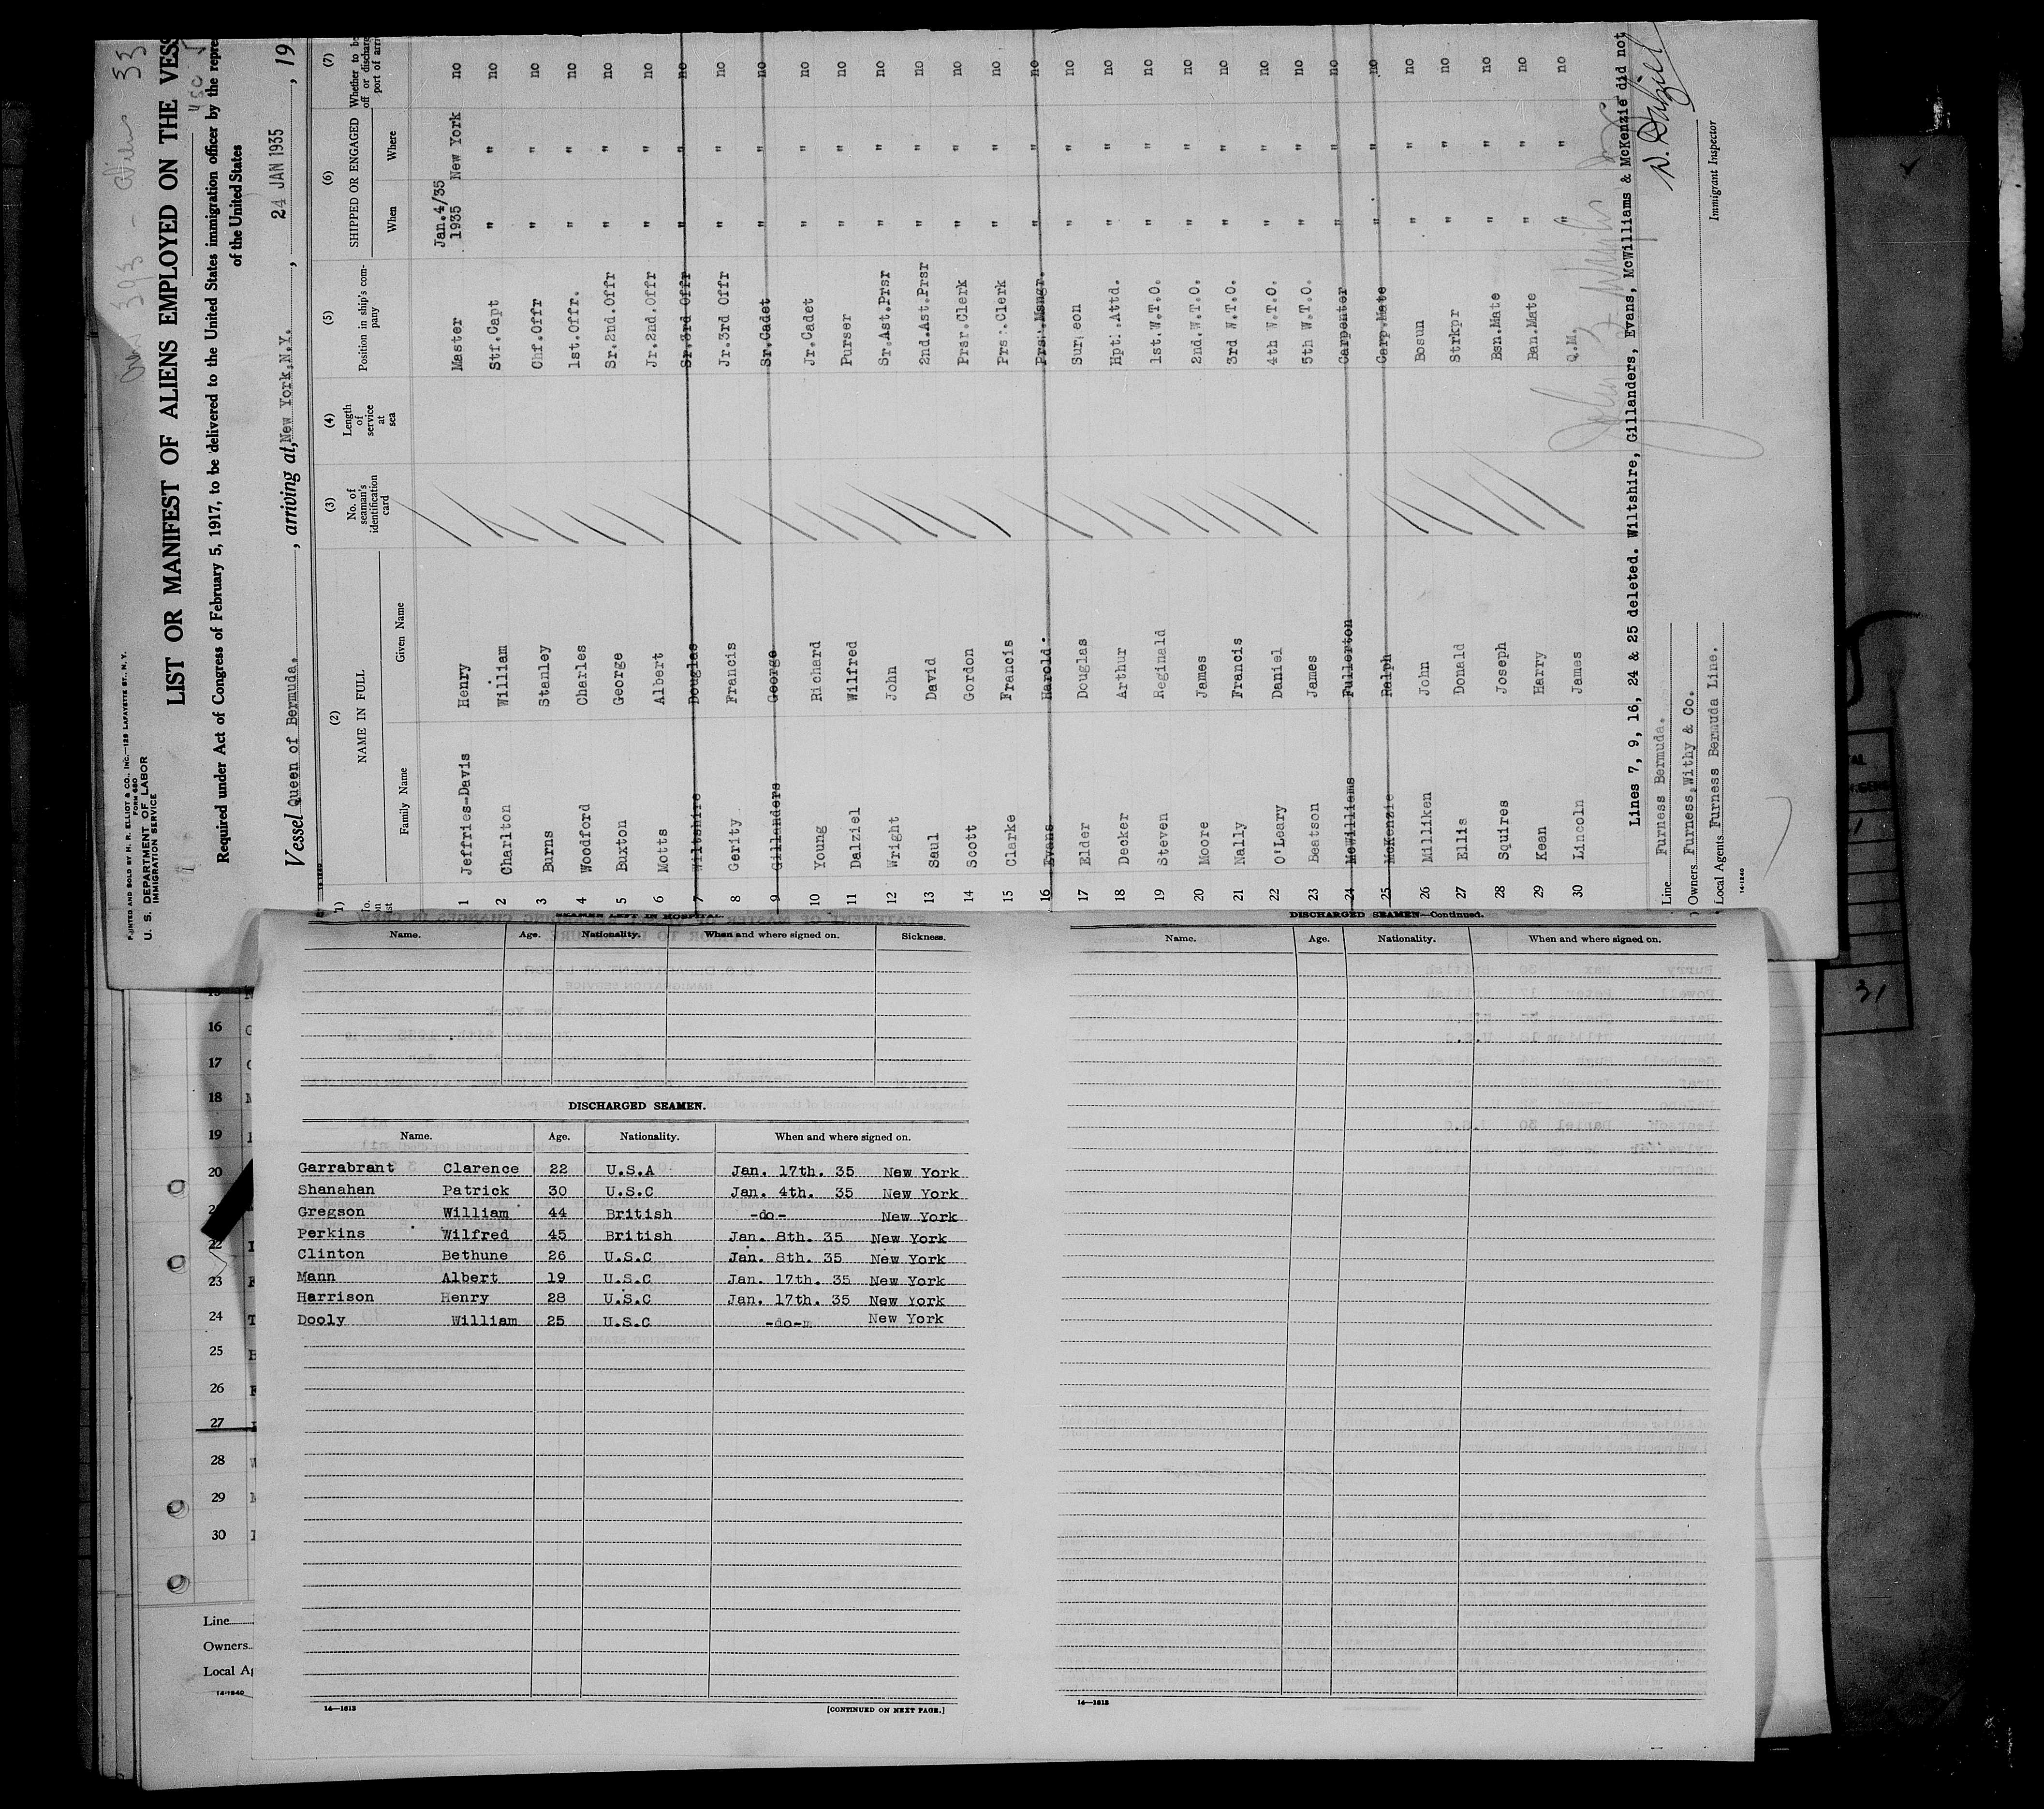 PRINTED AND SOLD BY H. R. ELLIOT & CO., INC.—129 LAFAYETTE ST., N. Y.
FORM 680
U. S. DEPARTMENT OF LABOR
IMMIGRATION SERVICE
33
LIST OR MANIFEST OF ALIENS EMPLOYED ON THE VESS
Required under Act of Congress of February 5, 1917, to be delivered to the United States immigration officer by the repre
of the United States
Vessel Queen of Bermuda. , arriving at, New York,N.Y. , 24 JAN 1935 , 19
(2) (3) (4) (5) (6) (7)
NAME IN FULL No. of seaman's identification card Length of service at sea Position in ship's company SHIPPED OR ENGAGED Whether to be
Family Name Given Name When Where off or discharg port of arri
1 Jeffries-Davis Henry Master Jan.4/35 1935 New York no
2 Charlton William Stf.Capt " " no
3 Burns Stanley Chf.Offr " " no
4 Woodford Charles 1st.Offr. " " no
5 Buxton George Sr.2nd.Offr " " no
6 Motts Albert Jr.2nd.Offr " " no
7 Wiltshire Douglas Sr.3rd Offr " " no
8 Gerity Francis Jr.3rd Offr " " no
9 Gillanders George Sr.Cadet " " no
10 Young Richard Jr.Cadet " " no
11 Dalziel Wilfred Purser " " no
12 Wright John Sr.Ast.Prsr " " no
13 Saul David 2nd.Ast.Prsr " " no
14 Scott Gordon Prsr.Clerk " " no
15 Clarke Francis Prsr.Clerk " " no
16 Evans Harold. Prsr.Msngr. " " no
17 Elder Douglas Surgeon " " no
18 Decker Arthur Hptl.Attd. " " no
19 Steven Reginald 1st.W.T.O. " " no
20 Moore James 2nd.W.T.O. " " no
21 Nally Francis 3rd W.T.O. " " no
22 O'Leary Daniel 4th W.T.O. " " no
23 Beatson James 5th W.T.O. " " no
24 McWilliams Fullerton Carpenter " " no
25 McKenzie Ralph Carp.Mate " " no
26 Milliken John Bosun " " no
27 Ellis Donald Strkpr " " no
28 Squires Joseph Bsn.Mate " " no
29 Kean Harry Bsn.Mate " " no
30 Lincoln James Q.M. " " no
Lines 7, 9, 16, 24 & 25 deleted. Wiltshire, Gillanders, Evans, McWilliams & McKenzie did not
Line Furness Bermuda.
Owners Furness,Withy & Co.
Local Agents Furness Bermuda Line.
14-1240
W. Dalziel
Immigrant Inspector
SEAMEN LEFT IN HOSPITAL.
Name. Age. Nationality. When and where signed on. Sickness.
DISCHARGED SEAMEN.
Name. Age. Nationality. When and where signed on.
Garrabrant Clarence 22 U.S.A Jan. 17th. 35 New York
Shanahan Patrick 30 U.S.C Jan. 4th. 35 New York
Gregson William 44 British -do- New York
Perkins Wilfred 45 British Jan. 8th. 35 New York
Clinton Bethune 26 U.S.C Jan. 8th. 35 New York
Mann Albert 19 U.S.C Jan. 17th. 35 New York
Harrison Henry 28 U.S.C Jan. 17th. 35 New York
Dooly William 25 U.S.C -do-m New York
14—1613
[CONTINUED ON NEXT PAGE.]
DISCHARGED SEAMEN—Continued.
Name. Age. Nationality. When and where signed on.
14—1613
16
17
18
19
20
22
23
24
25
26
27
28
29
30
Line
Owners
Local Ag
14-1240
31